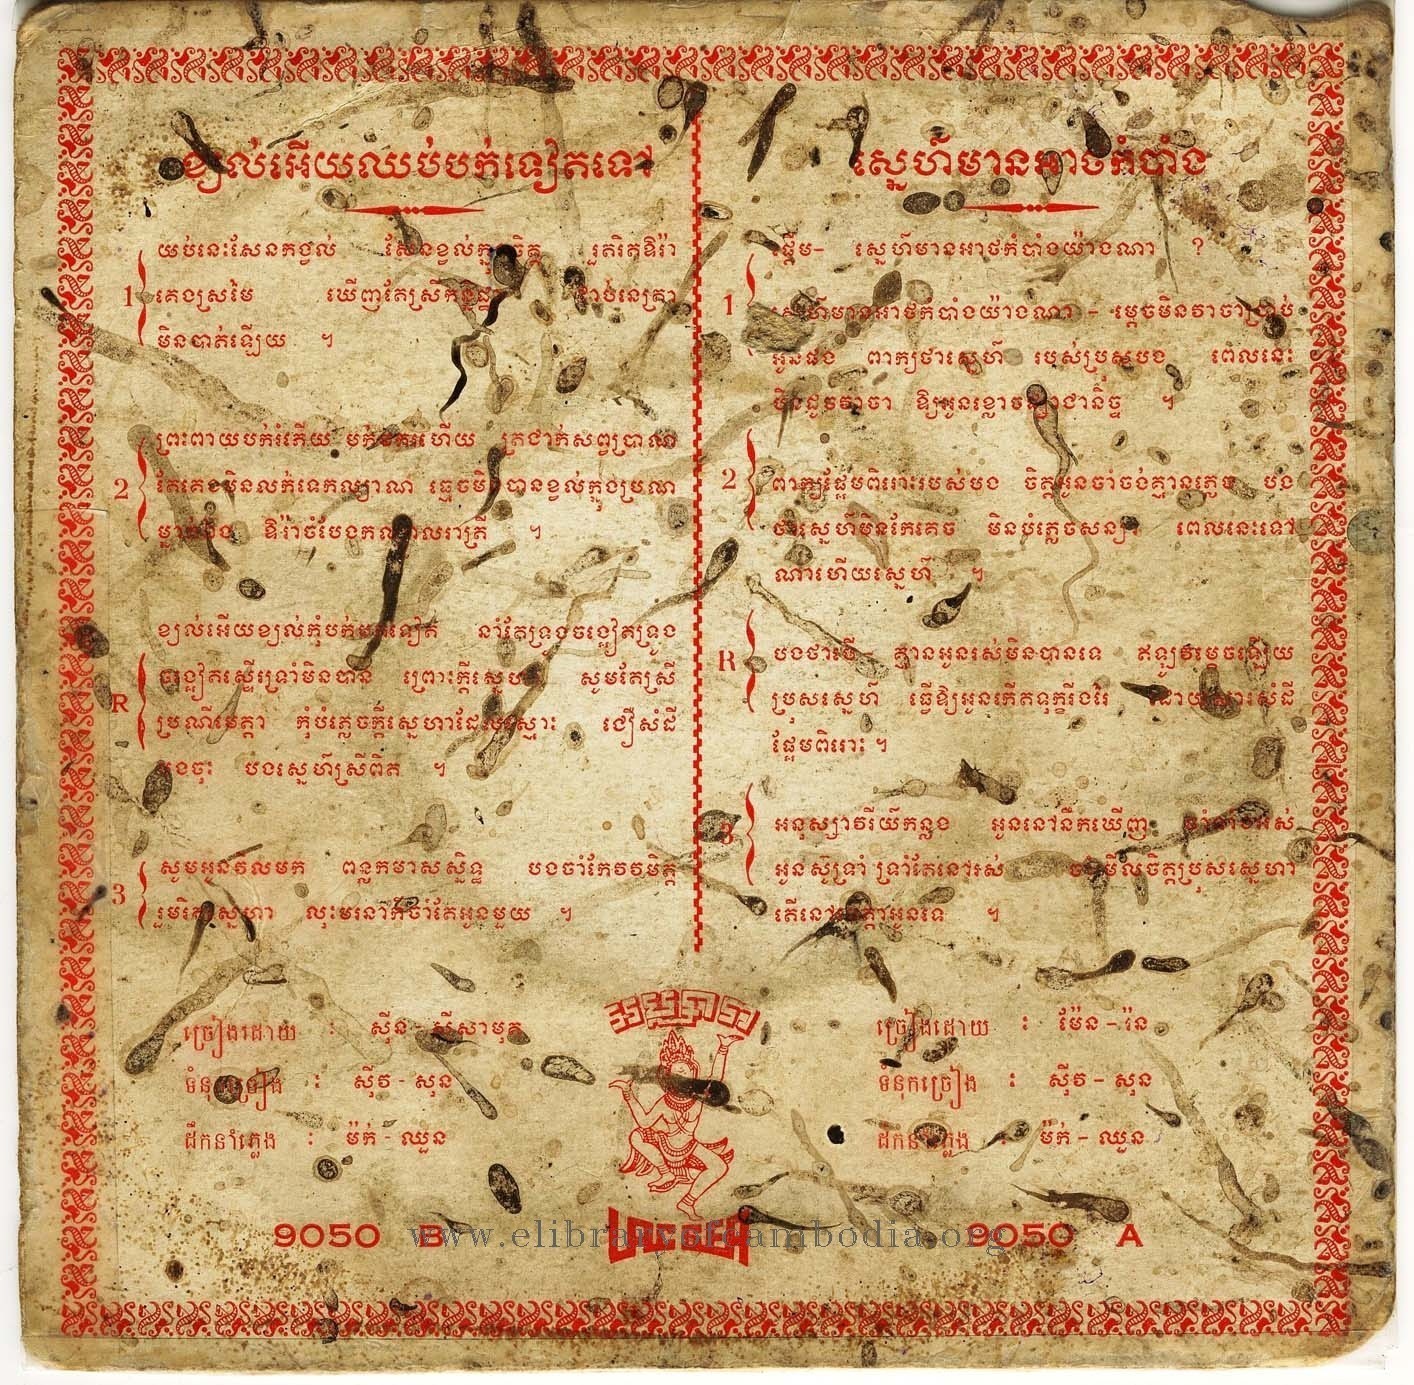 ខ្យល់អើយឈប់បក់ទៀតទៅ
1
យប់នេះសែនកង្វល់ សែនខ្វល់ក្នុងចិត្ត រួតរិតឱរ៉ា
គេងស្រមៃ ឃើញតែស្រី
មិនបាត់ឡើយ ។
2
ព្រះពាយបក់រំភើយ មក់ ហើយ ត្រជាក់សព្វប្រាណ
តែគេងមិនលក់ទេកល្យាណ ធ្មេចមិនបានខ្វល់ក្នុងប្រាណ
ឱរ៉ាចំបែងកណ្ដាលរាត្រី ។
R
ខ្យល់អើយខ្យល់កុំបក់ ទៀត នាំតែទ្រូងចង្អៀតទ្រូង
ចង្អៀតស្ទើរទ្រាំមិនបាន ព្រោះក្ដីស្នេហា សូមតែស្រី
ប្រណីមេត្តា កុំបំភ្លេចក្ដីស្នេហាដែលស្មោះ ជឿសំដី
បងចុះ បងស្នេហ៍ស្រីពិត ។
3
សូមអូនវិលមក ពន្លកមាសស្និទ្ធ បងចាំកែវវរមិត្ត
រួមរិតស្នេហា លុះមរនាក៏ចាំតែអូនមួយ ។
ច្រៀងដោយ : ស៊ីន - ស៊ីសាមុត
ទំនុកច្រៀង : ស៊ីវ - សុន
ដឹកនាំភ្លេង : ម៉ក់ - ឈួន
9050 B
ស្នេហ៍មានអាថ៌កំបាំង
ផ្ដើម- ស្នេហ៍មានអាថកំបាំងយ៉ាងណា ?
1
ស្នេហ៍មានអាថកំបាំងយ៉ាងណា - ម្ដេចមិនវាចាប្រាប់
អូនផង ពាក្យថាស្នេហ៍ របស់ប្រុសបង ពេលនេះ
វាចា ឱ្យអូនខ្លោចផ្សាជានិច្ច ។
2
ពាក្យផ្អែមពិរោះរបស់បង ចិត្តអូនចាំចង់គ្មានភ្លេច បង
ថាស្នេហ៍មិនកែគេច មិនបំភ្លេចសន្យា ពេលនេះទៅ
ណាហើយស្នេហ៍ ។
R
បងថាបើ គ្មានអូនរស់មិនបានទេ ឥឡូវម្ដេចឡើយ
ប្រុសស្នេហ៍ ធ្វើឱ្យអូនកើតទុក្ខរីងរៃ ដោយសារសំដី
ផ្អែមពិរោះ ។
3
អនុស្សាវរីយ៍កន្លង អូននៅនឹកឃើញ
អូនស៊ូទ្រាំ ទ្រាំតែនៅរស់ ចាំមើលចិត្តប្រុសស្នេហា
តើនៅមេត្តាអូនទេ ។
ច្រៀងដោយ : ម៉ែន - រ៉ន
ទំនុកច្រៀង : ស៊ីវ - សុន
ដឹកនាំភ្លេង : ម៉ក់ - ឈួន
9050 A
www.elibraryofcambodia.org